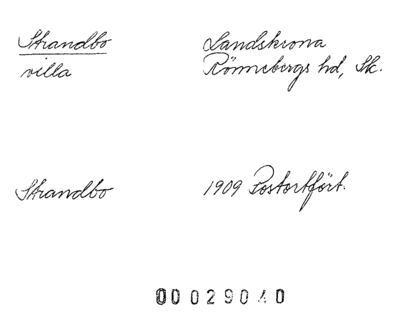 Strandbo
villa
Landskrona
Rönnebergs hd, Sk.
Strandbo
1909 Postortfört.
00029040